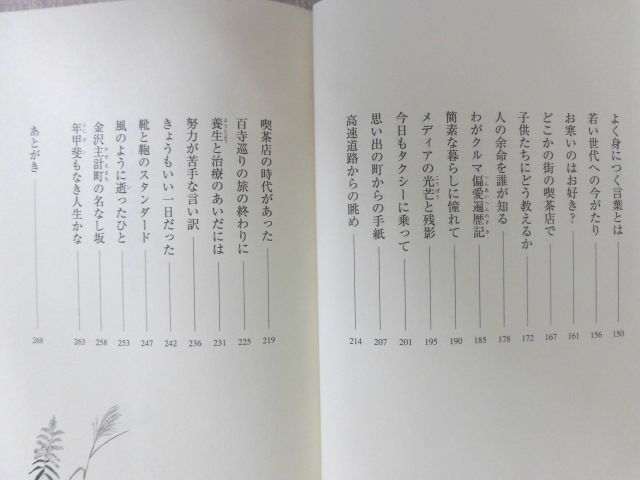 よく身につく言葉とは 150
若い世代への今がたり 156
お寒いのはお好き? 161
どこかの街の喫茶店で 167
子供たちにどう教えるか 172
人の余命を誰が知る 178
わがクルマ偏愛遍歴記 185
簡素な暮らしに憧れて 190
メディアの光芒と残影 195
今日もタクシーに乗って 201
思い出の町からの手紙 207
高速道路からの眺め 214
喫茶店の時代があった 219
百寺巡りの旅の終わりに 225
養生と治療のあいだには 231
努力が苦手な言い訳 236
きょうもいい一日だった 242
靴と鞄のスタンダード 247
風のように逝ったひと 253
金沢主計町の名なし坂 258
年甲斐もなき人生かな 263
あとがき 268